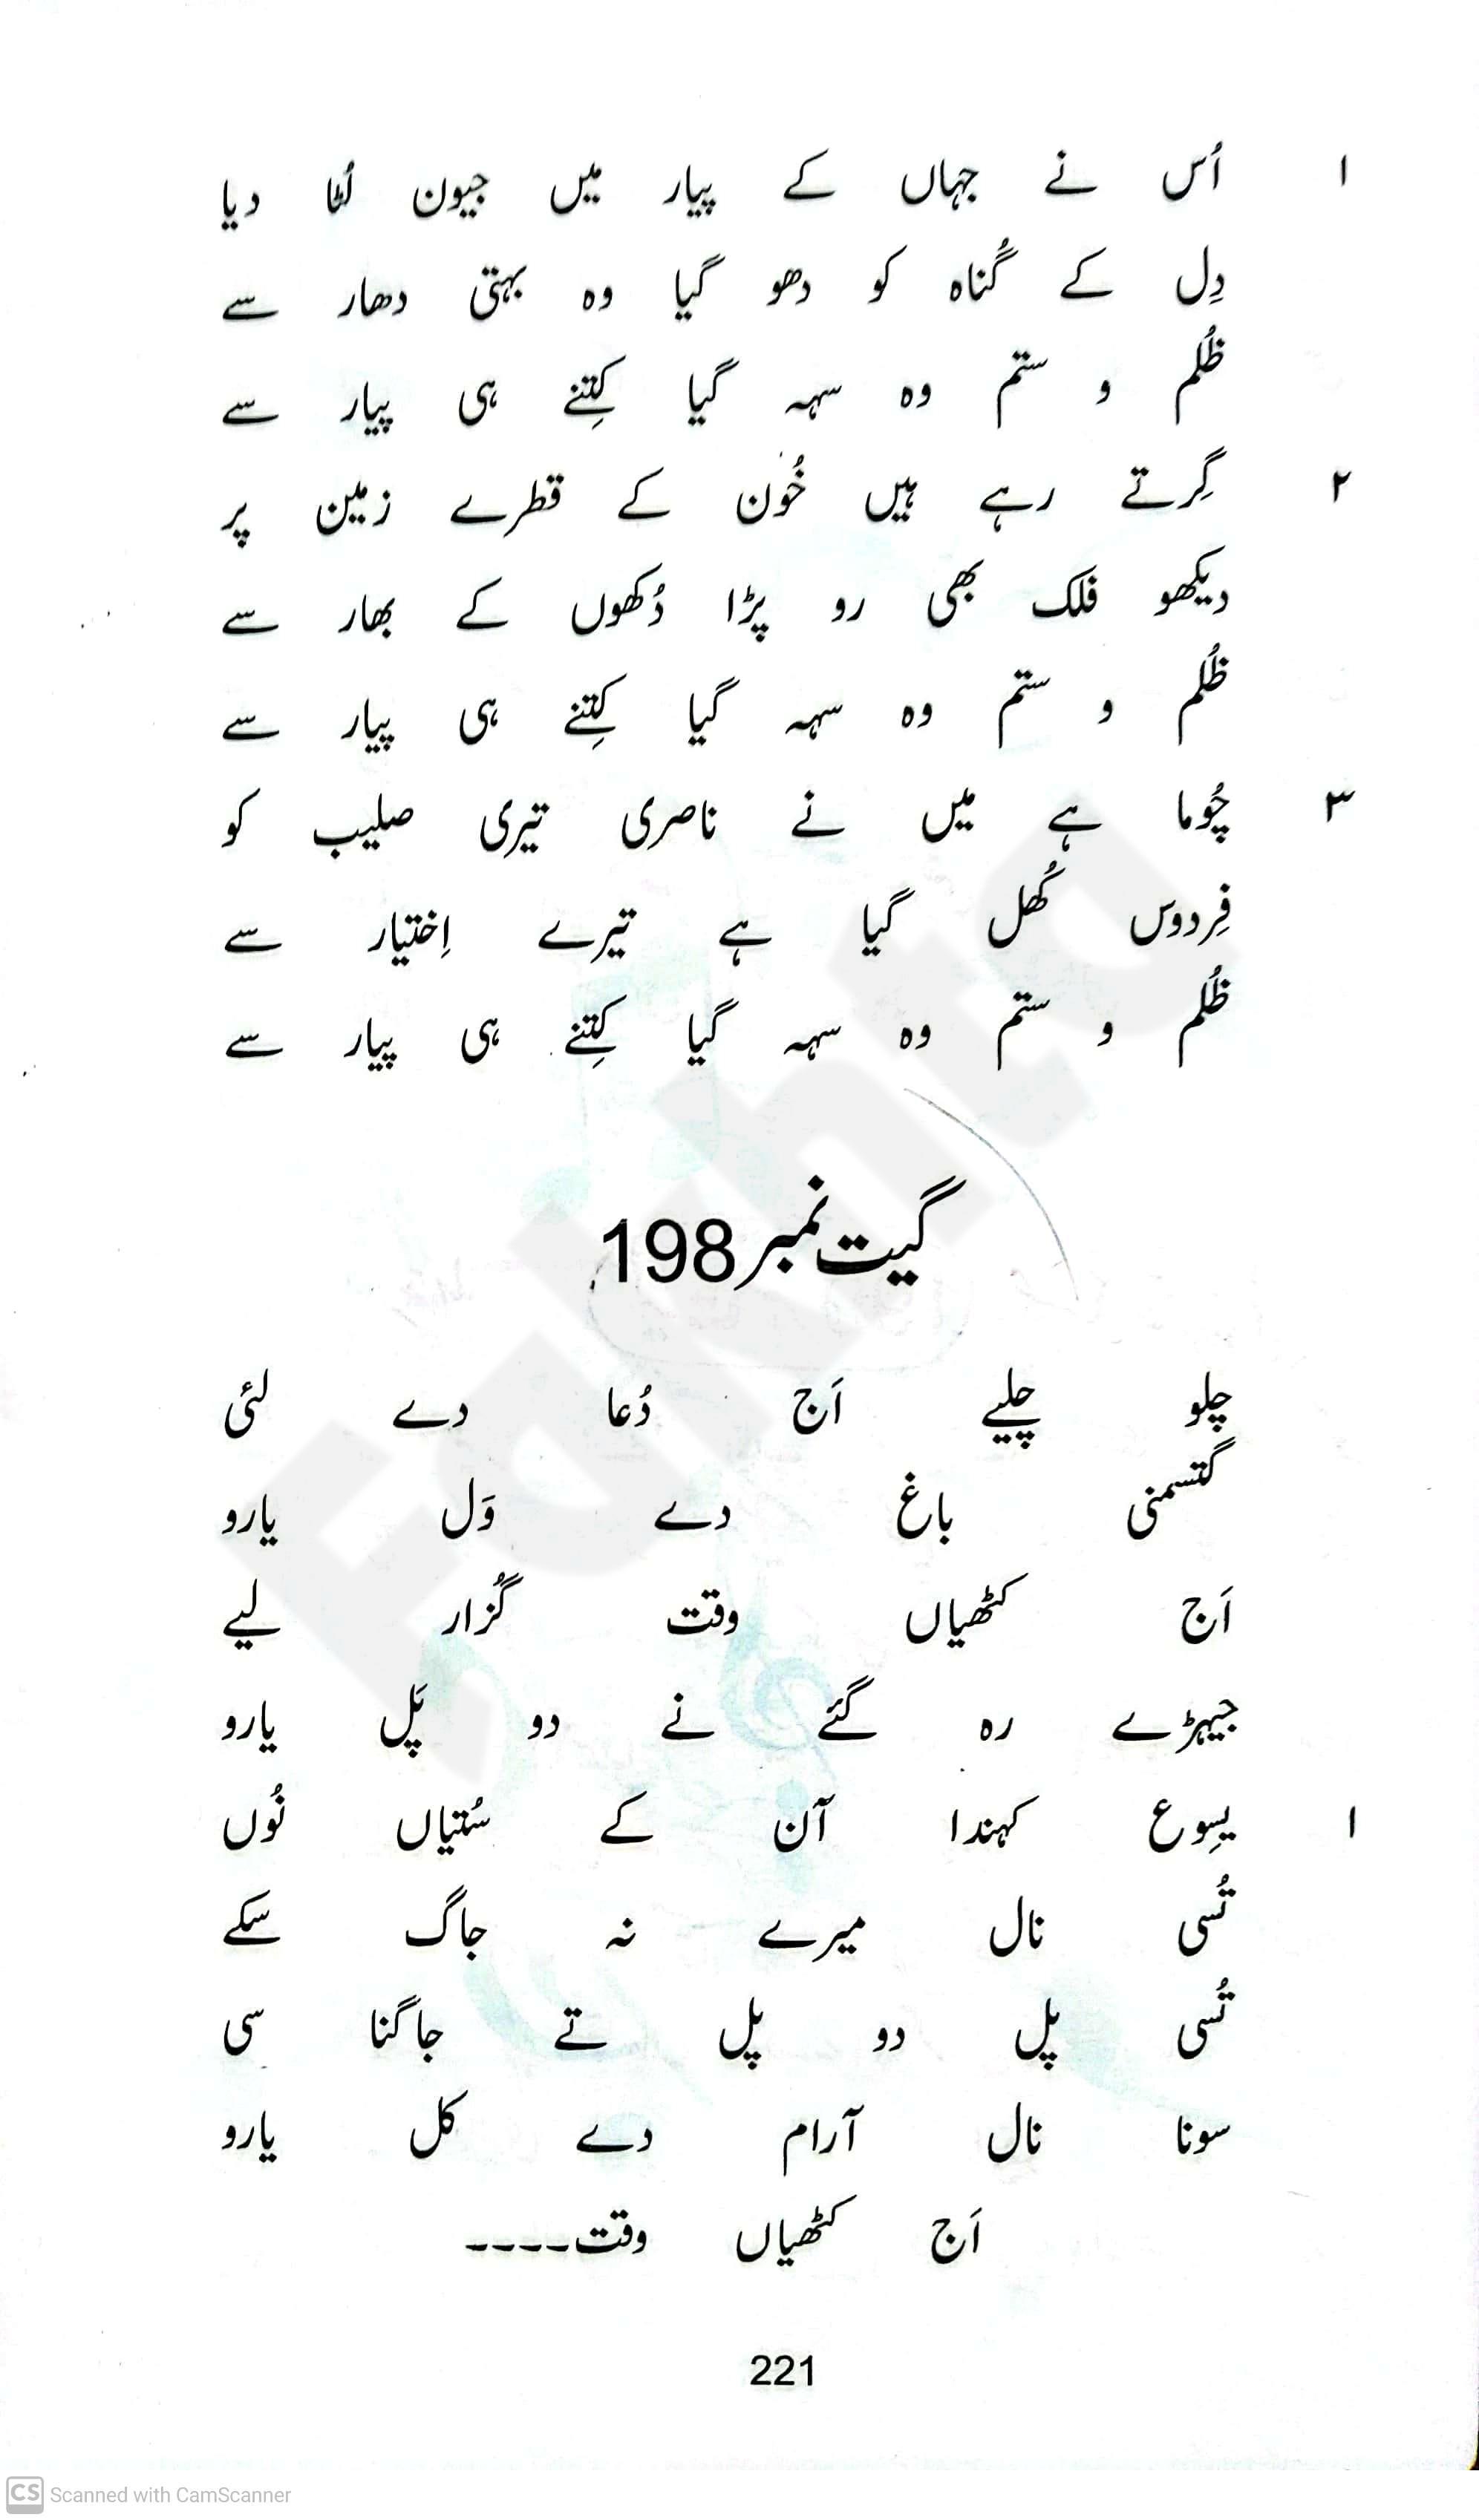 ۱ اُس نے جہاں کے پیار میں جیون لُٹا دیا
دِل کے گُناہ کو دھو گیا وہ بہتی دھار سے
ظُلم و ستم وہ سہہ گیا کِتنے ہی پیار سے
۲ گِرتے رہے ہیں خُون کے قطرے زمین پر
دیکھو فلک بھی رو پڑا دُکھوں کے بھار سے
ظُلم و ستم وہ سہہ گیا کِتنے ہی پیار سے
۳ چُوما ہے میں نے ناصری تیری صلیب کو
فِردوس کُھل گیا ہے تیرے اِختیار سے
ظُلم و ستم وہ سہہ گیا کِتنے ہی پیار سے
گیت نمبر 198
چلو چلیے اَج دُعا دے لئی
گتسمنی باغ دے وَل یارو
اَج کٹھیاں وقت گُزار لیے
جیہڑے رہ گئے نے دو پَل یارو
۱ یسِوع کہندا آن کے سُتیاں نُوں
تُسی نال میرے نہ جاگ سکے
تُسی پل دو پل تے جاگنا سی
سونا نال آرام دے کل یارو
اَج کٹھیاں وقت۔۔۔۔
221
Fakhta
CS Scanned with CamScanner